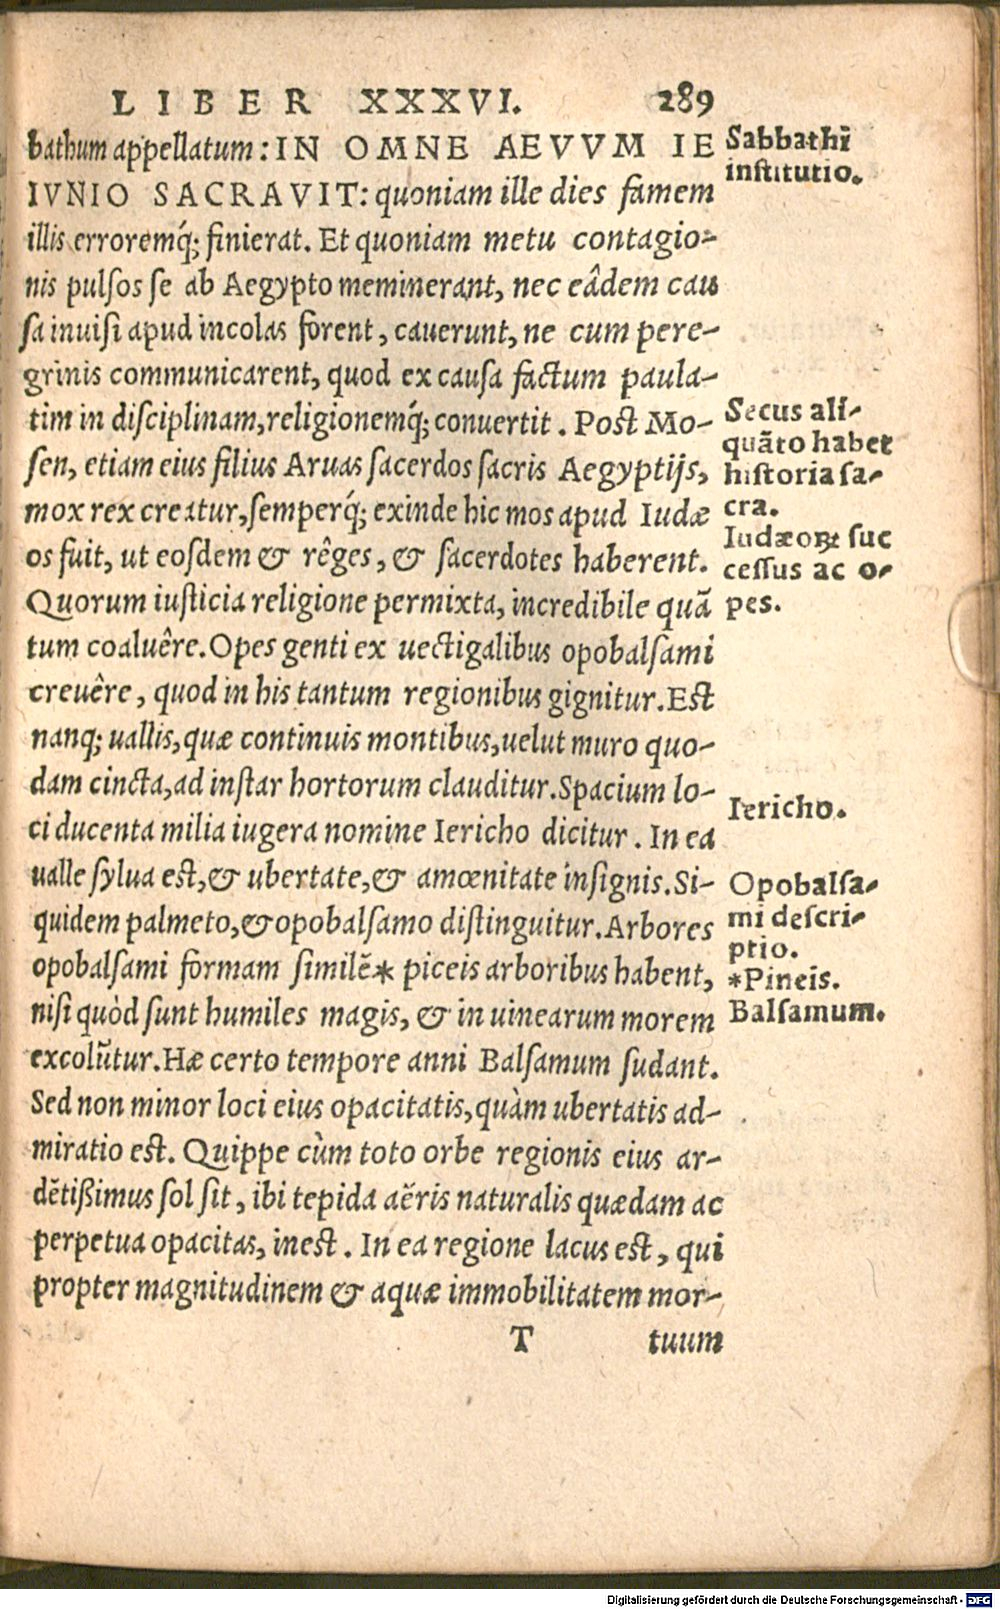 LIBER XXXVI. 289
bathum appellatum: IN OMNE AEVVM IE
IVNIO SACRAVIT: quoniam ille dies famem
illis erroremq́; finierat. Et quoniam metu contagio-
nis pulsos se ab Aegypto meminerant, nec eâdem cau
sa inuisi apud incolas forent, cauerunt, ne cum pere-
grinis communicarent, quod ex causa factum paula-
tim in disciplinam, religionemq́; conuertit. Post Mo-
sen, etiam eius filius Aruas sacerdos sacris Aegyptijs,
mox rex creatur, semperq́; exinde hic mos apud Iudæ
os fuit, ut eosdem & rêges, & sacerdotes haberent.
Quorum iusticia religione permixta, incredibile quã
tum coaluêre. Opes genti ex uectigalibus opobalsami
creuêre, quod in his tantum regionibus gignitur. Est
nanq; uallis, quæ continuis montibus, uelut muro quo-
dam cincta, ad instar hortorum clauditur. Spacium lo-
ci ducenta milia iugera nomine Iericho dicitur. In ea
ualle sylua est, & ubertate, & amœnitate insignis. Si-
quidem palmeto, & opobalsamo distinguitur. Arbores
opobalsami formam similẽ* piceis arboribus habent,
nisi quòd sunt humiles magis, & in uinearum morem
excolũtur. Hæ certo tempore anni Balsamum sudant.
Sed non minor loci eius opacitatis, quàm ubertatis ad-
miratio est. Quippe cùm toto orbe regionis eius ar-
dẽtißimus sol sit, ibi tepida aëris naturalis quædam ac
perpetua opacitas, inest. In ea regione lacus est, qui
propter magnitudinem & aquæ immobilitatem mor-
T tuum
Sabbathi
institutio.
Secus ali-
quãto habet
historia sa-
cra.
Iudæoꝝ suc
cessus ac o-
pes.
Iericho.
Opobalsa-
mi descri-
ptio.
*Pineis.
Balsamum.
Digitalisierung gefördert durch die Deutsche Forschungsgemeinschaft - DFG